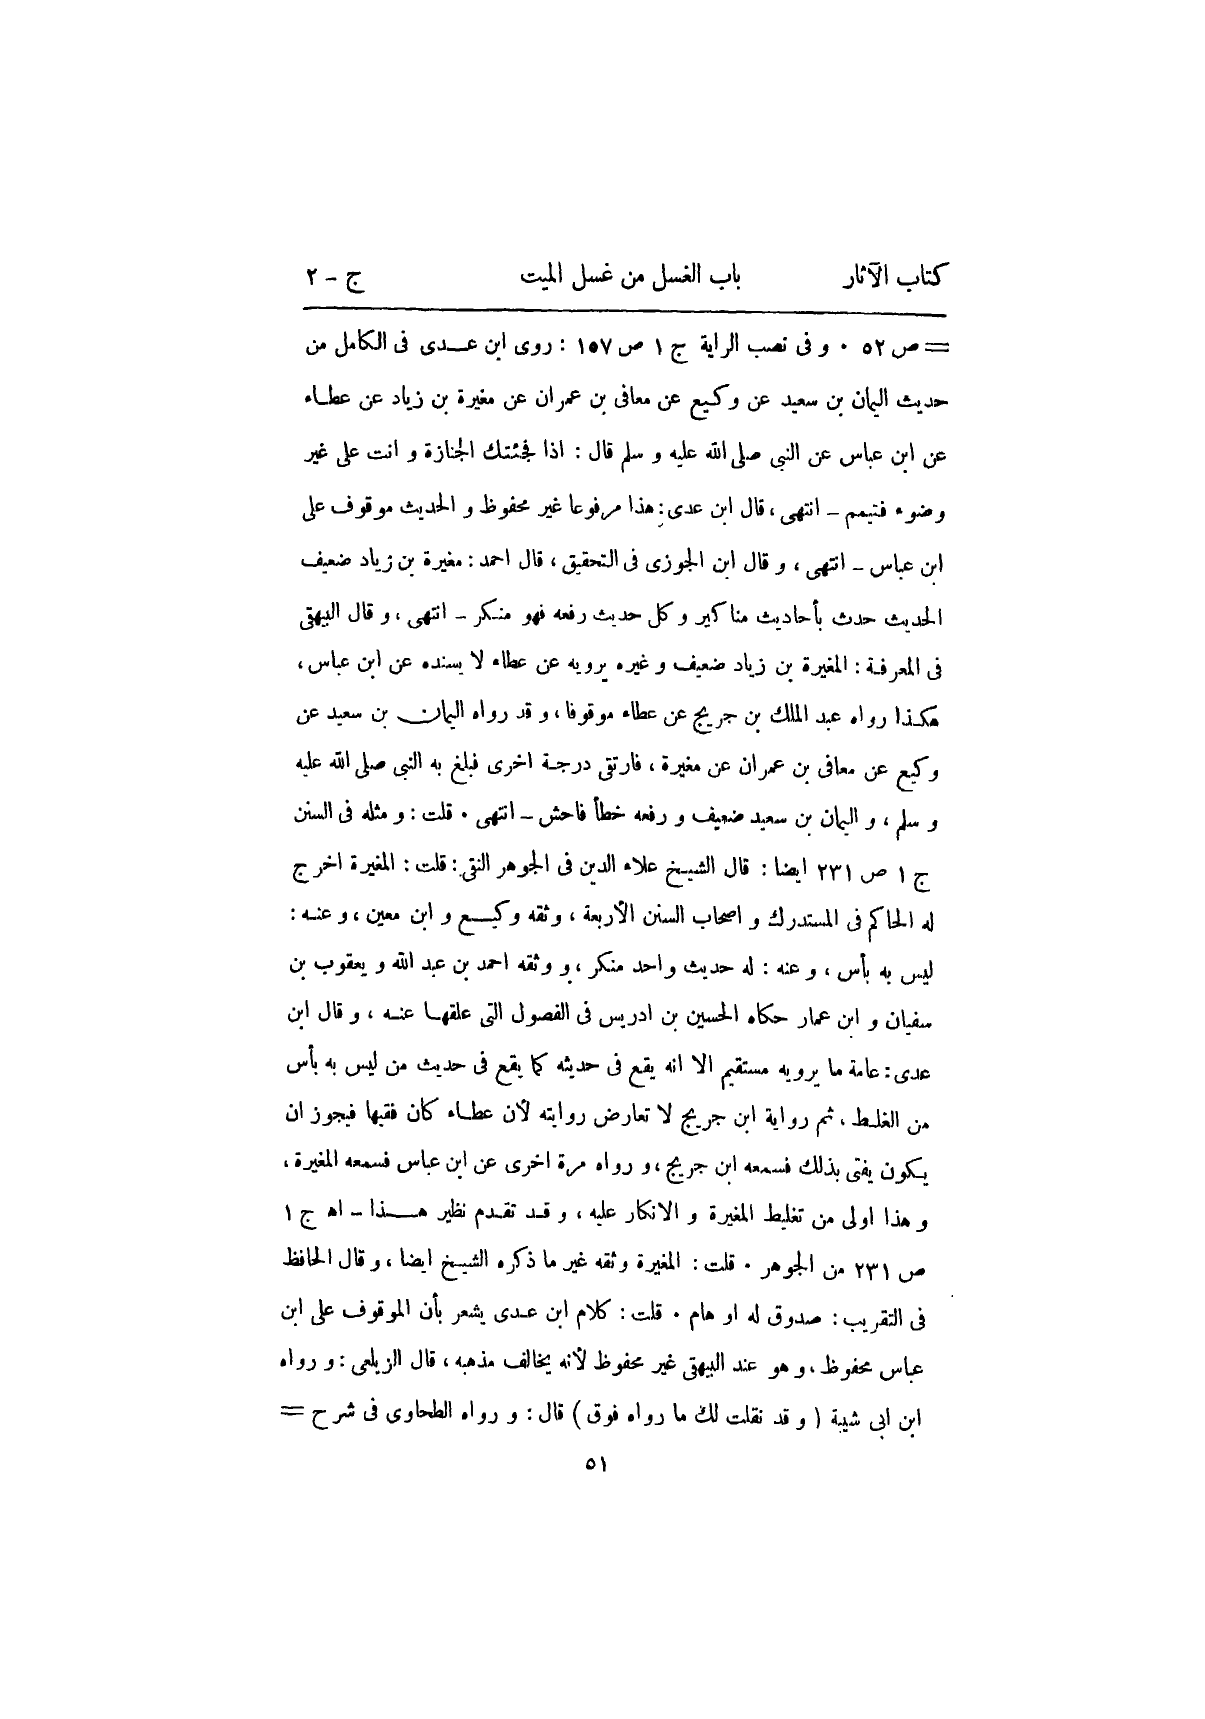 كتاب الآثار باب الغسل من غسل الميت ج - ٢
= ص ٥٢ ٠ و فى نصب الراية ج ١ ص ١٥٧ : روى ابن عدى فى الكامل من
حديث اليمان بن سعيد عن وكيع عن معافى بن عمران عن مغيرة بن زياد عن عطاء
عن ابن عباس عن النبى صلى الله عليه و سلم قال : اذا فجئتك الجنازة و انت على غير
وضوء فتيمم - انتهى ، قال ابن عدى : هذا مرفوعا غير محفوظ و الحديث موقوف على
ابن عباس - انتهى ، و قال ابن الجوزى فى التحقيق ، قال احمد : مغيرة بن زياد ضعيف
الحديث حدث بأحاديث مناكير و كل حديث رفعه فهو منكر - انتهى ، و قال البيهقى
فى المعرفة : المغيرة بن زياد ضعيف و غيره يرويه عن عطاء لا يسنده عن ابن عباس ،
هكذا رواه عبد الملك بن جريج عن عطاء موقوفا ، و قد رواه اليمان بن سعيد عن
وكيع عن معافى بن عمران عن مغيرة ، فارتقى درجة اخرى فبلغ به النبى صلى الله عليه
و سلم ، و اليمان بن سعيد ضعيف و رفعه خطأ فاحش - انتهى ٠ قلت : و مثله فى السنن
ج ١ ص ٢٣١ ايضا : قال الشيخ علاء الدين فى الجوهر النقى : قلت : المغيرة اخرج
له الحاكم فى المستدرك و اصحاب السنن الأربعة ، وثقه وكيع و ابن معين ، و عنه :
ليس به بأس ، و عنه : له حديث واحد منكر ، و وثقه احمد بن عبد الله و يعقوب بن
سفيان و ابن عمار حكاه الحسين بن ادريس فى الفصول التى علقها عنه ، و قال ابن
عدى : عامة ما يرويه مستقيم الا انه يقع فى حديثه كما يقع فى حديث من ليس به بأس
من الغلط ، ثم رواية ابن جريج لا تعارض روايته لأن عطاء كان فقيها فيجوز ان
يكون يفتى بذلك فسمعه ابن جريج ، و رواه مرة اخرى عن ابن عباس فسمعه المغيرة ،
و هذا اولى من تغليط المغيرة و الانكار عليه ، و قد تقدم نظير هذا - اه ج ١
ص ٢٣١ من الجوهر ٠ قلت : المغيرة وثقه غير ما ذكره الشيخ ايضا ، و قال الحافظ
فى التقريب : صدوق له او هام ٠ قلت : كلام ابن عدى يشعر بأن الموقوف على ابن
عباس محفوظ ، و هو عند البيهقى غير محفوظ لأنه يخالف مذهبه ، قال الزيلعى : و رواه
ابن ابى شيبة ( و قد نقلت لك ما رواه فوق ) قال : و رواه الطحاوى فى شرح =
٥١